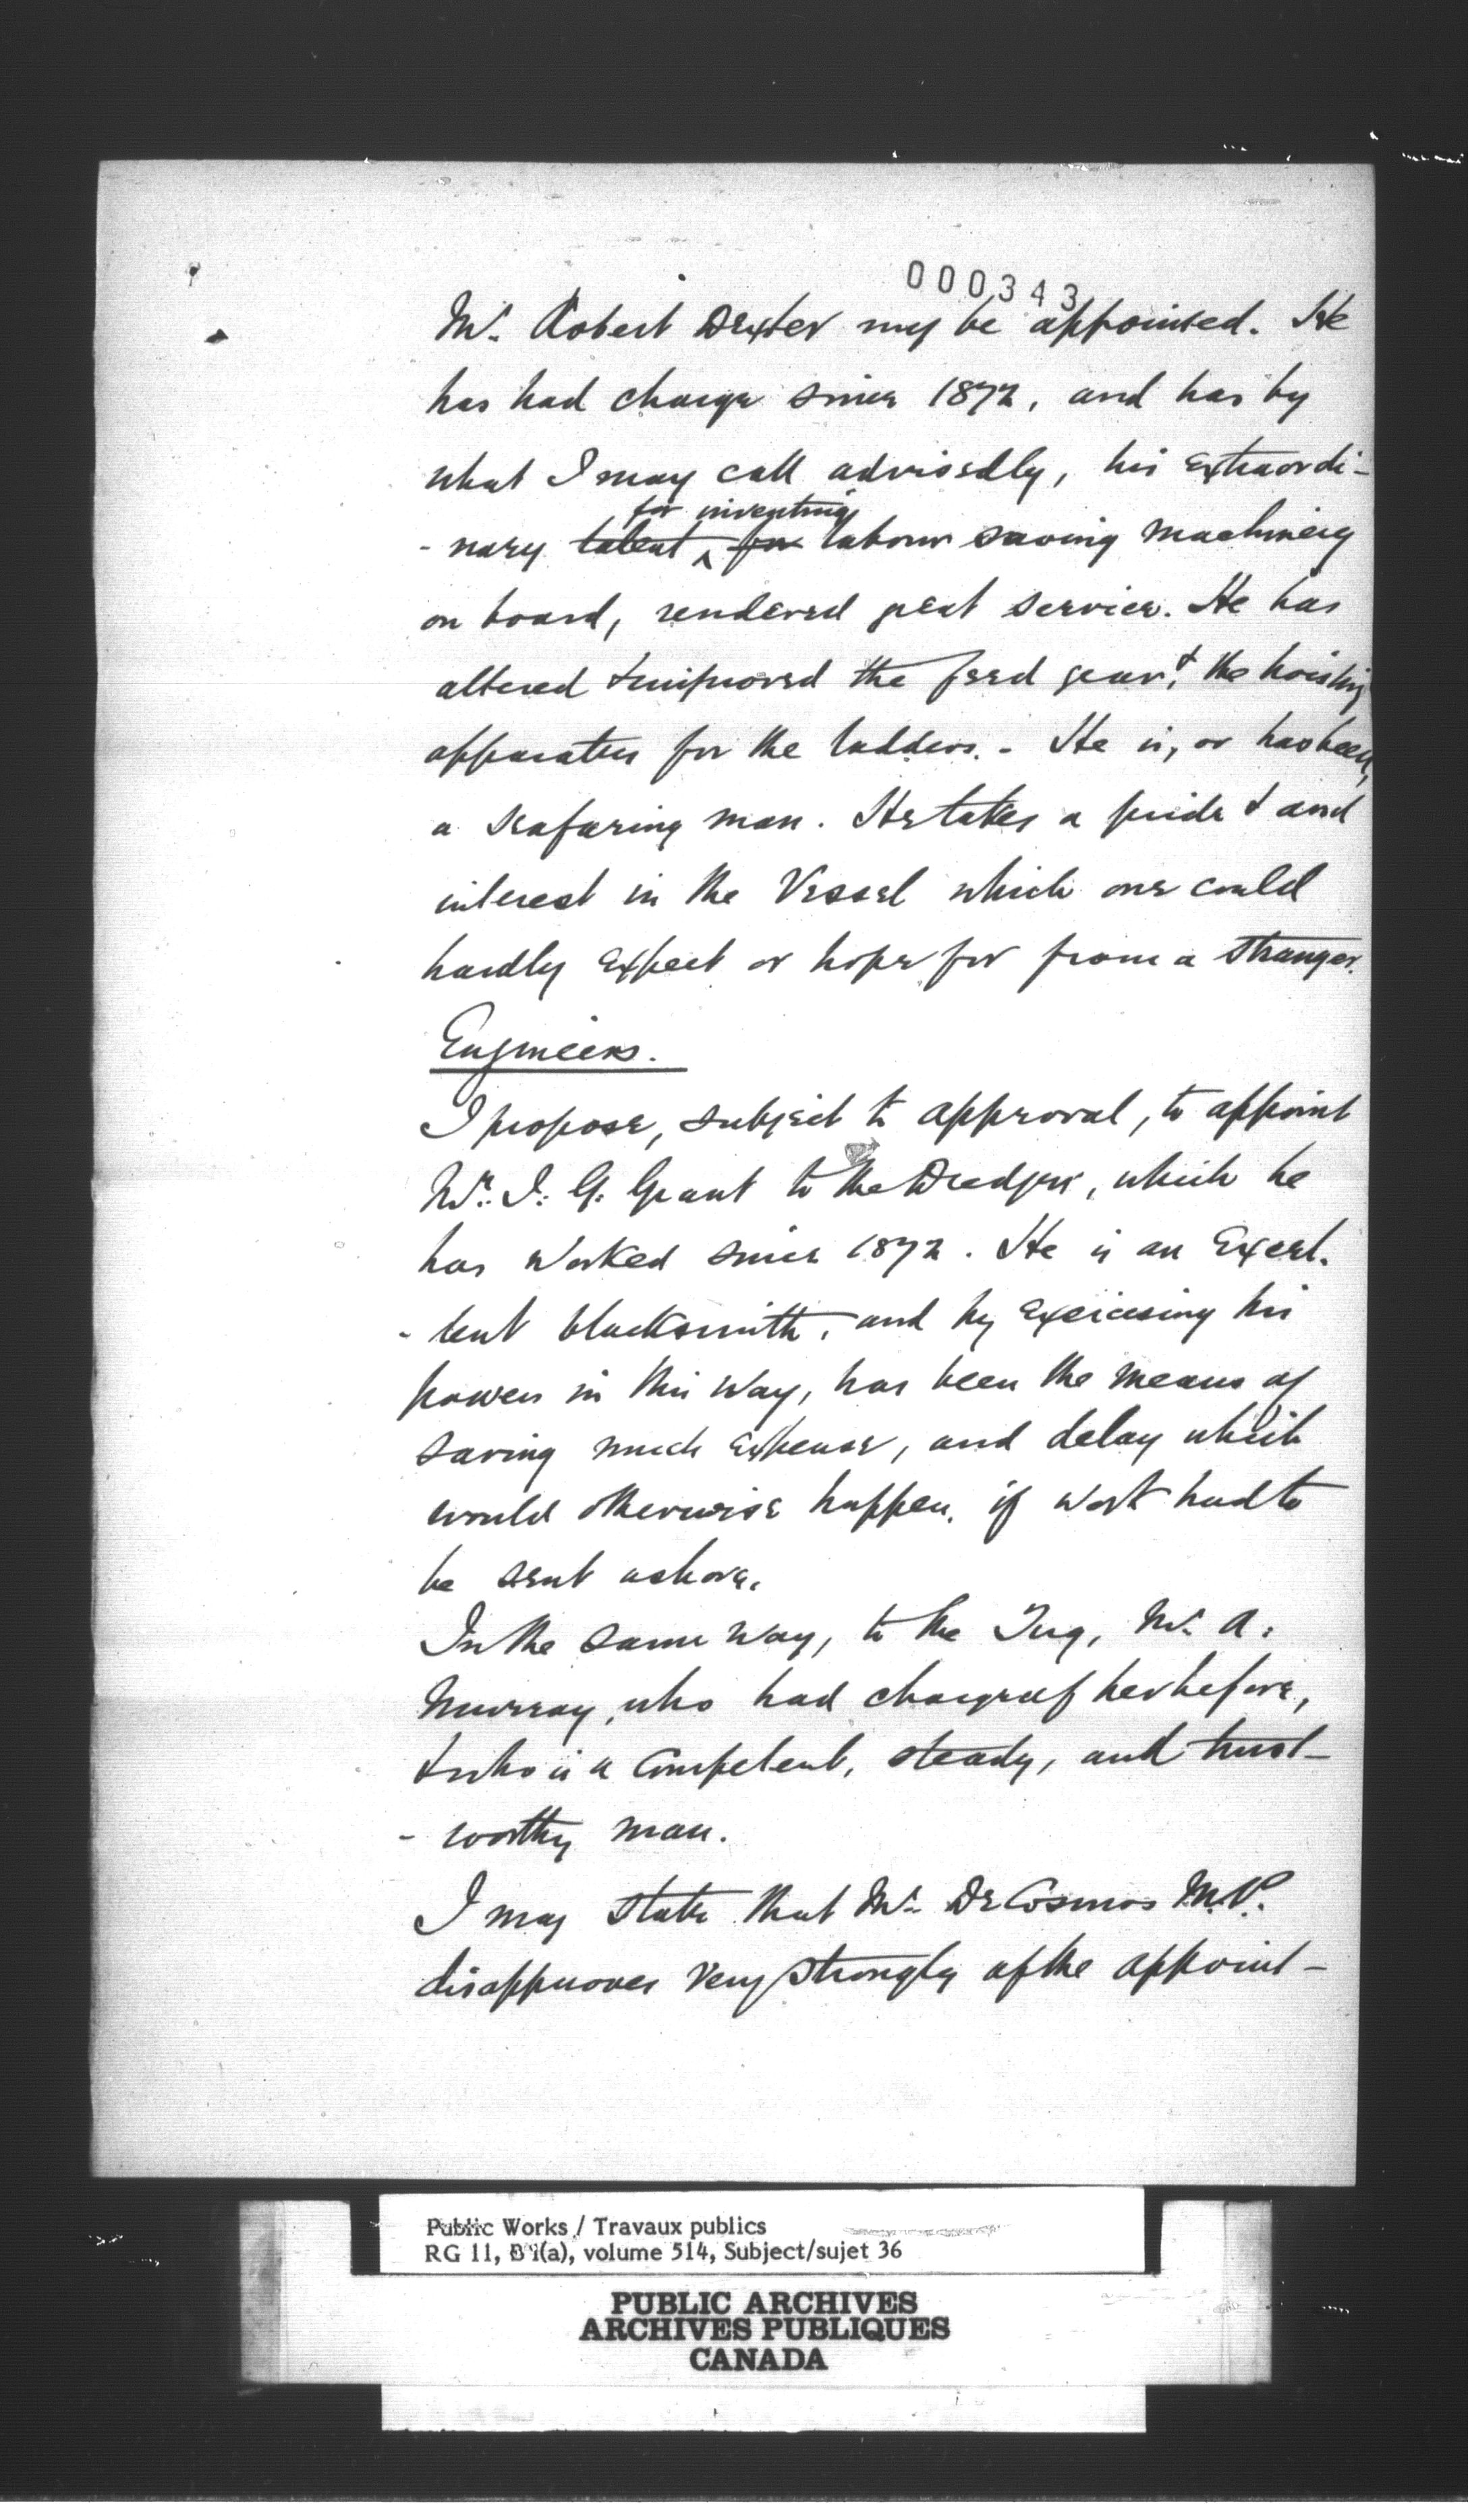 000343
Mr. Robert Dexter may be appointed. He
has had charge since 1872, and has by
what I may call advisedly, his extraordi-
for inventing
- nary talent for labour saving machinery
on board, rendered great service. He has
altered & improved the feed gear, & the hoisting
apparatus for the ladders. - He is, or has been,
a seafaring man. He takes a pride & and
interest in the Vessel which one could
hardly expect or hope for from a stranger.
Engineers.
I propose, subject to approval, to appoint
Mr. I. G. Grant to the Dredger, which he
has worked since 1872. He is an Excel-
- lent blacksmith, and by exercising his
powers in this way, has been the means of
saving much expense, and delay which
would otherwise happen, if work had to
be sent ashore.
In the same way, to the Tug, Mr. A.
Murray, who had charge of her before,
& who is a Competent, steady, and trust-
- worthy man.
I may state that Mr. De Cosmos M.P.
disapproves very strongly of the appoint-
Public Works / Travaux publics
RG 11, B 1(a), volume 514, Subject/sujet 36
PUBLIC ARCHIVES
ARCHIVES PUBLIQUES
CANADA